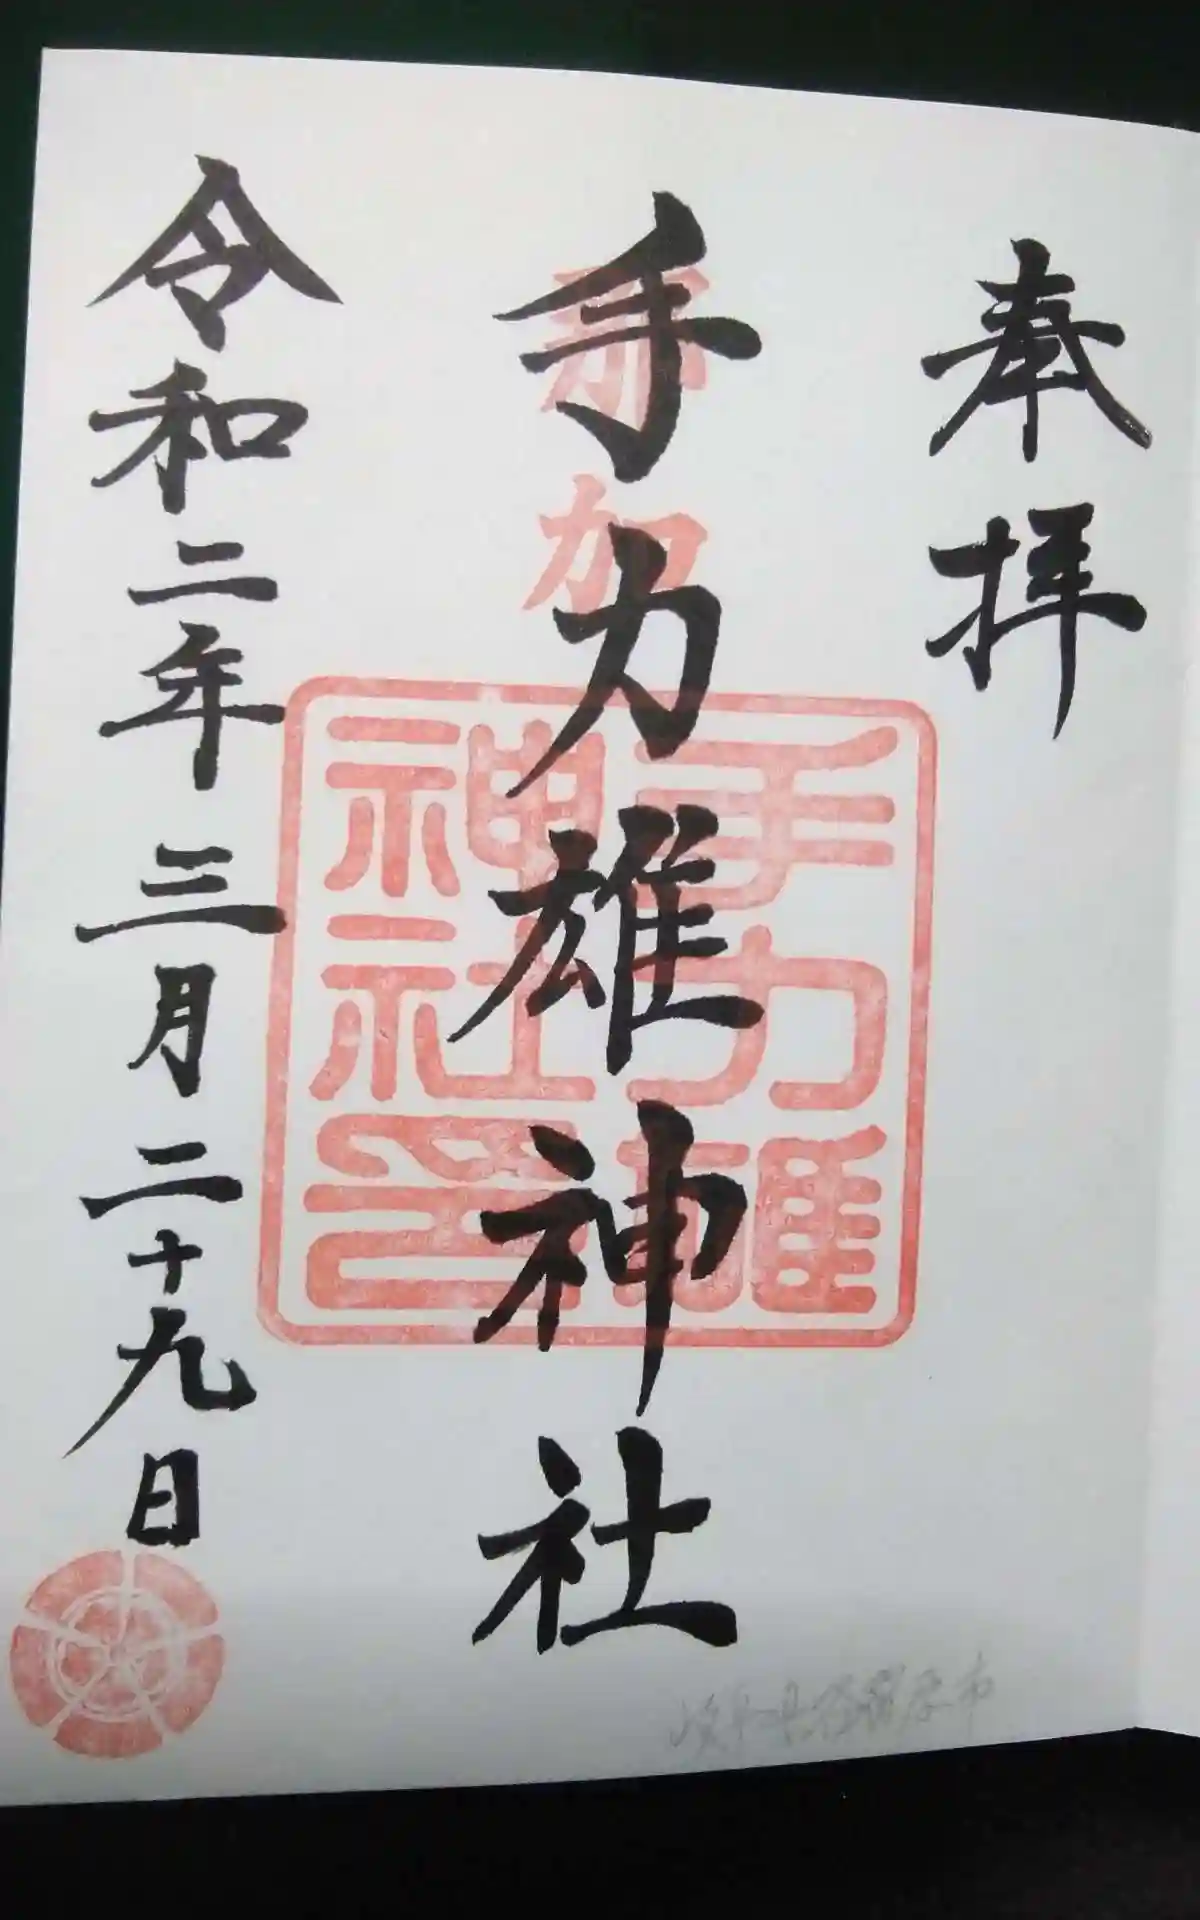 奉拝
那加
手力雄神社
手力雄
神社印
令和二年三月二十九日
岐阜県各務原市